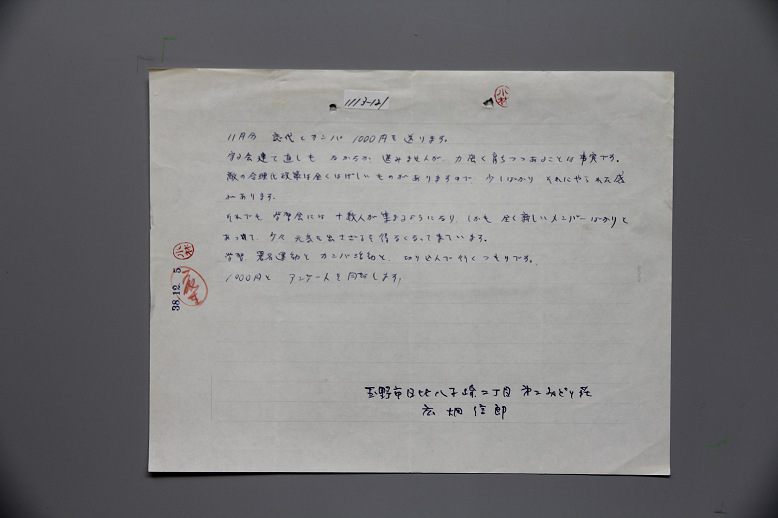 1113-121
小林
11月分 誌代とカンパ 1000円を送ります。
守る会建て直しも なかなか 進みませんが、力強く育ちつつあることは事実です。
敵の合理化政策は全くはげしいものがありますので、少しばかり それにやられた感
があります。
それでも 学習会には 十数人が集まるようになり、しかも 全く新しいメンバーばかりと
あって、少々 元気を出さざるを得なくなって来ています。
学習、署名運動と カンパ活動と、切り込んで行くつもりです。
1000円と アンケートを同封します。
小林
38.12.5
玉野市日比八子峰二丁目 第二みどり荘
広畑信郎